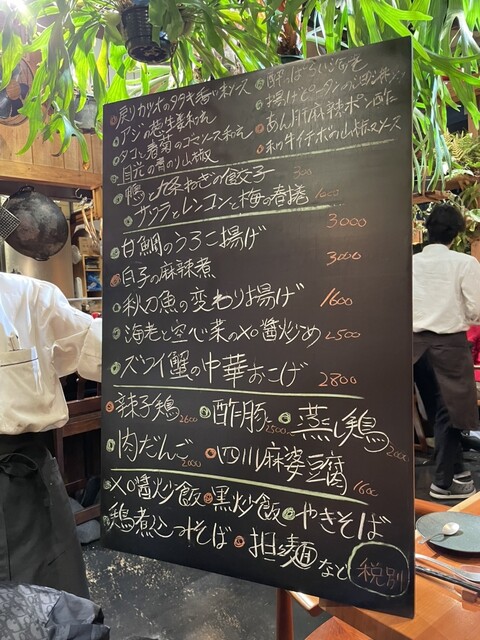 戻りカツオのタタキ香味ソース
アジの葱生姜和え
タコと春菊のゴマソース和え
酔っぱらい
揚げピータンの
あん肝麻辣ポン酢
和牛イチボの山椒ソース
鴨と九条ねぎの餃子 300
サワラとレンコンと梅の春捲 1000
甘鯛のうろこ揚げ 3000
白子の麻辣煮 3000
秋刀魚の変わり揚げ 1600
海老と空心菜のXO醤炒め 2500
ズワイ蟹の中華おこげ 2800
辣子鶏 2600 酢豚 2500 蒸し鶏 2000
肉だんご 2000 四川麻婆豆腐 1600
XO醤炒飯 黒炒飯 やきそば
鶏煮込つゆそば 担々麺 など 税別